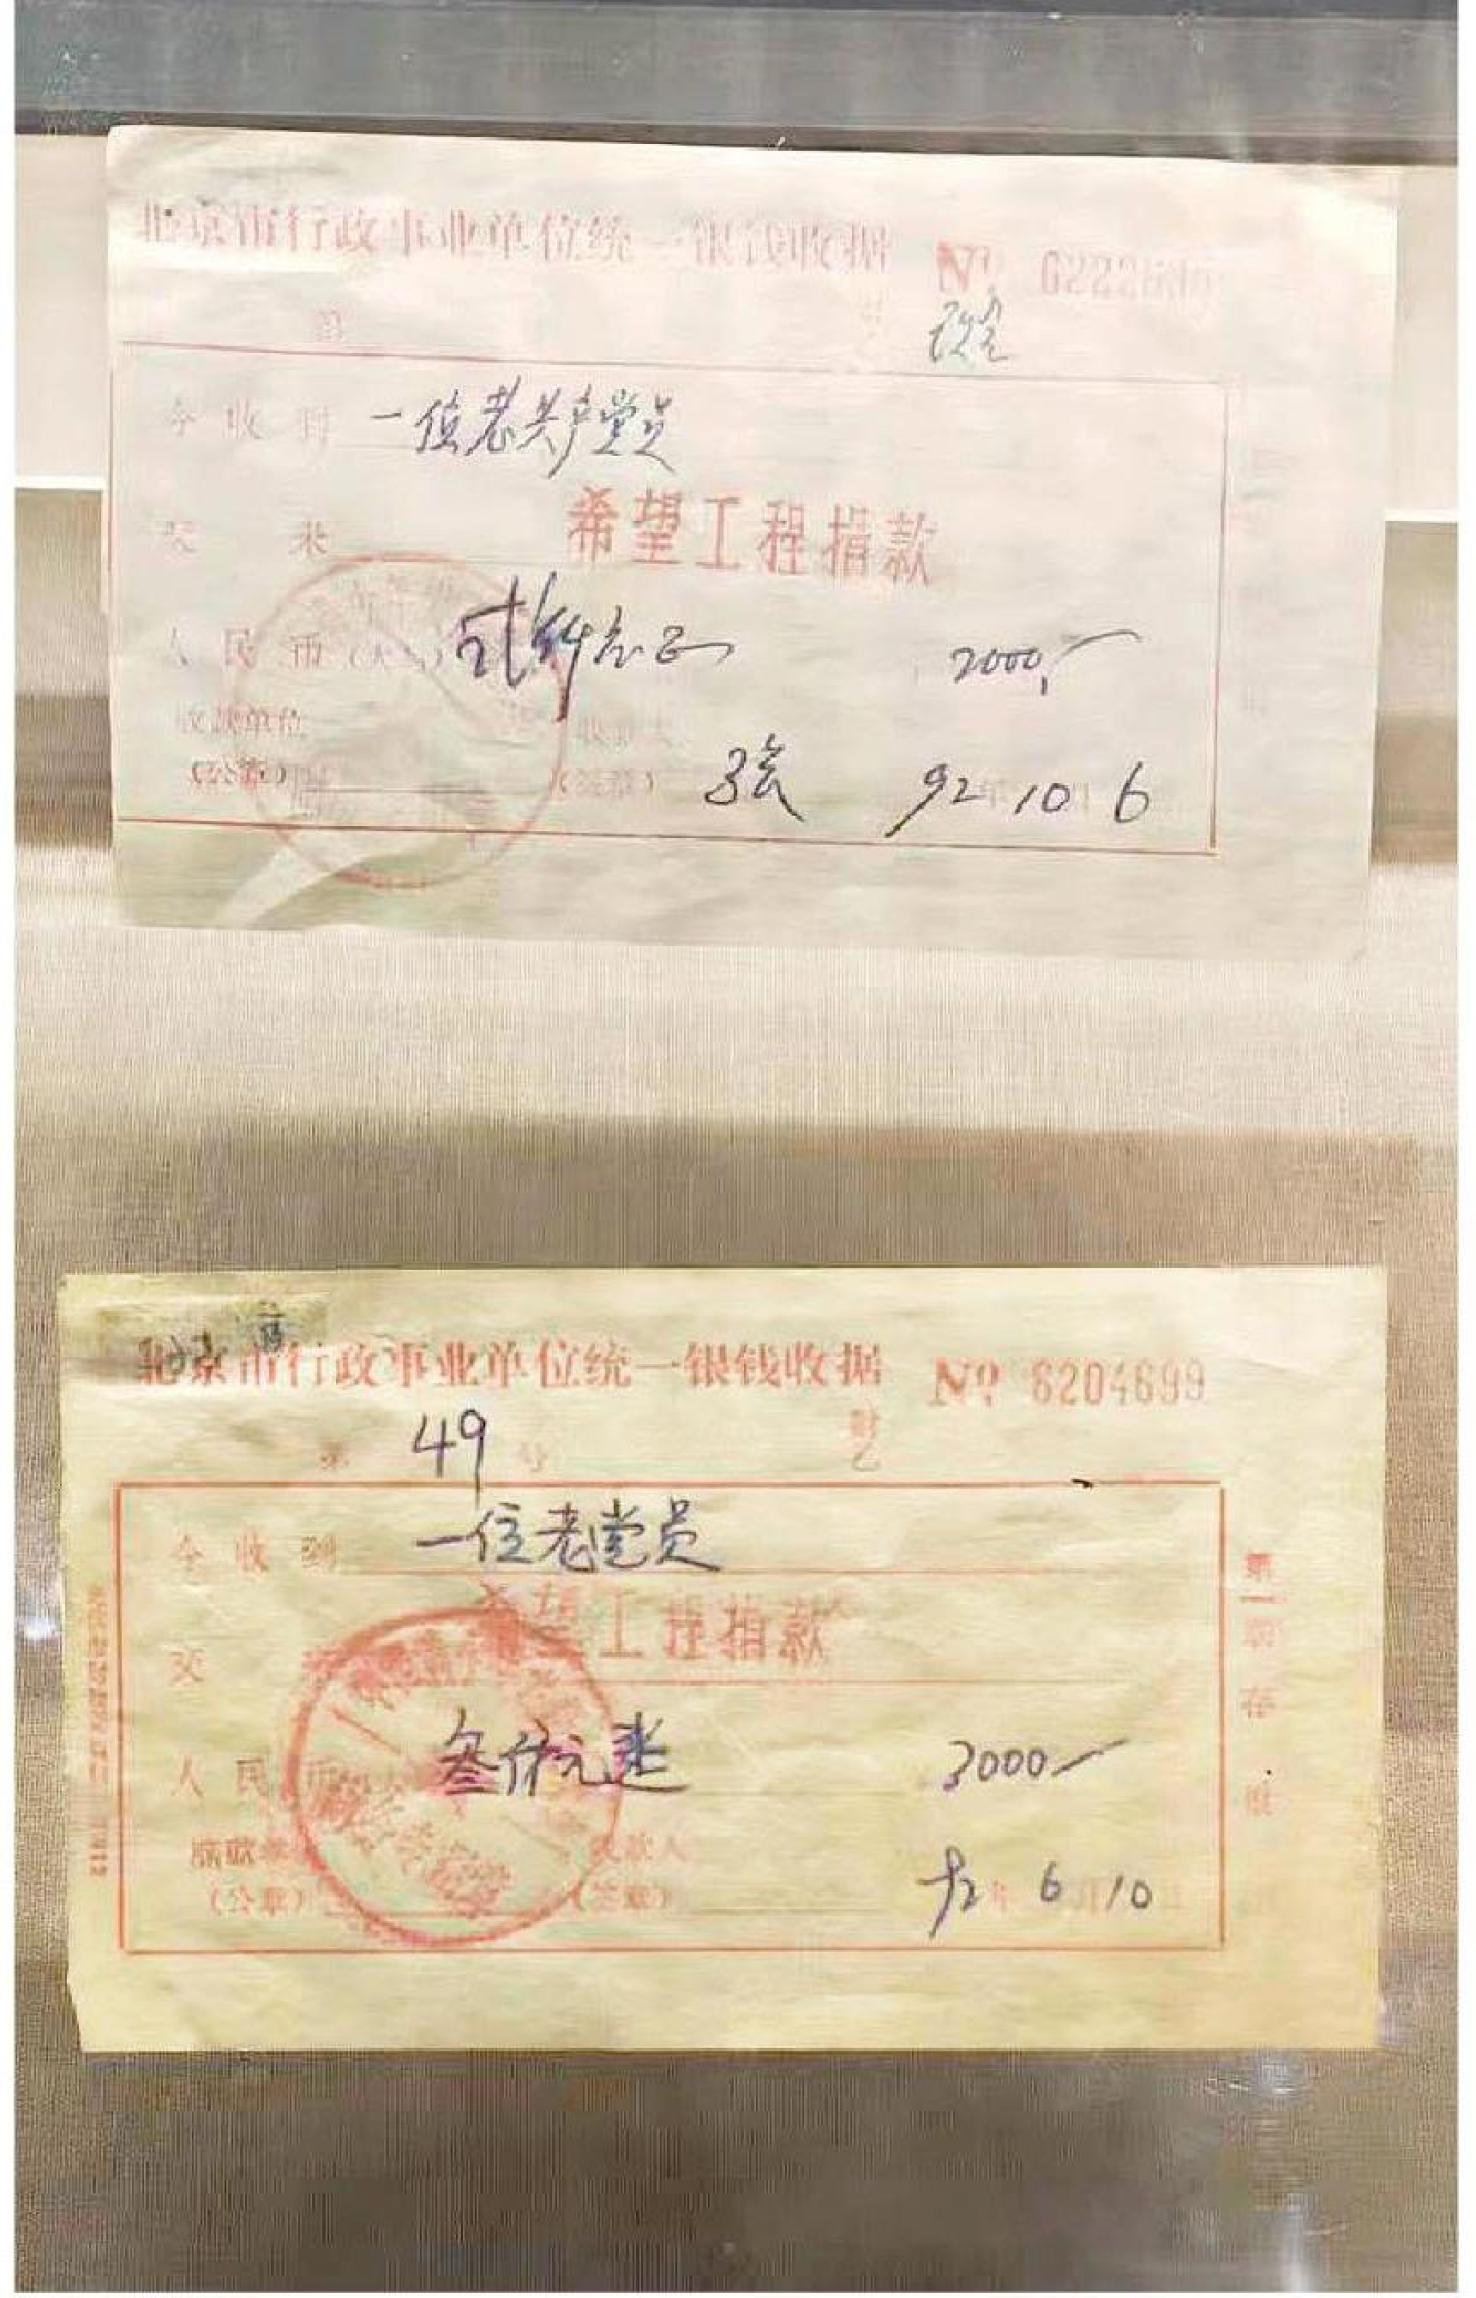 北京市行政事业单位统一银钱收据 Nº 6222
第
现金
今收到 一位老共产党员
交来 希望工程捐款
人民币(大写) 贰仟元正 2000,-
收款单位 收款人
(公章) (签章) 张 92年10月6
北京市行政事业单位统一银钱收据 Nº 6204699
第 49 号
今收到 一位老党员
交来 希望工程捐款
人民币 叁仟元整 3000-
收款人
(公章) (签章) 92年6月10日
第一联存根